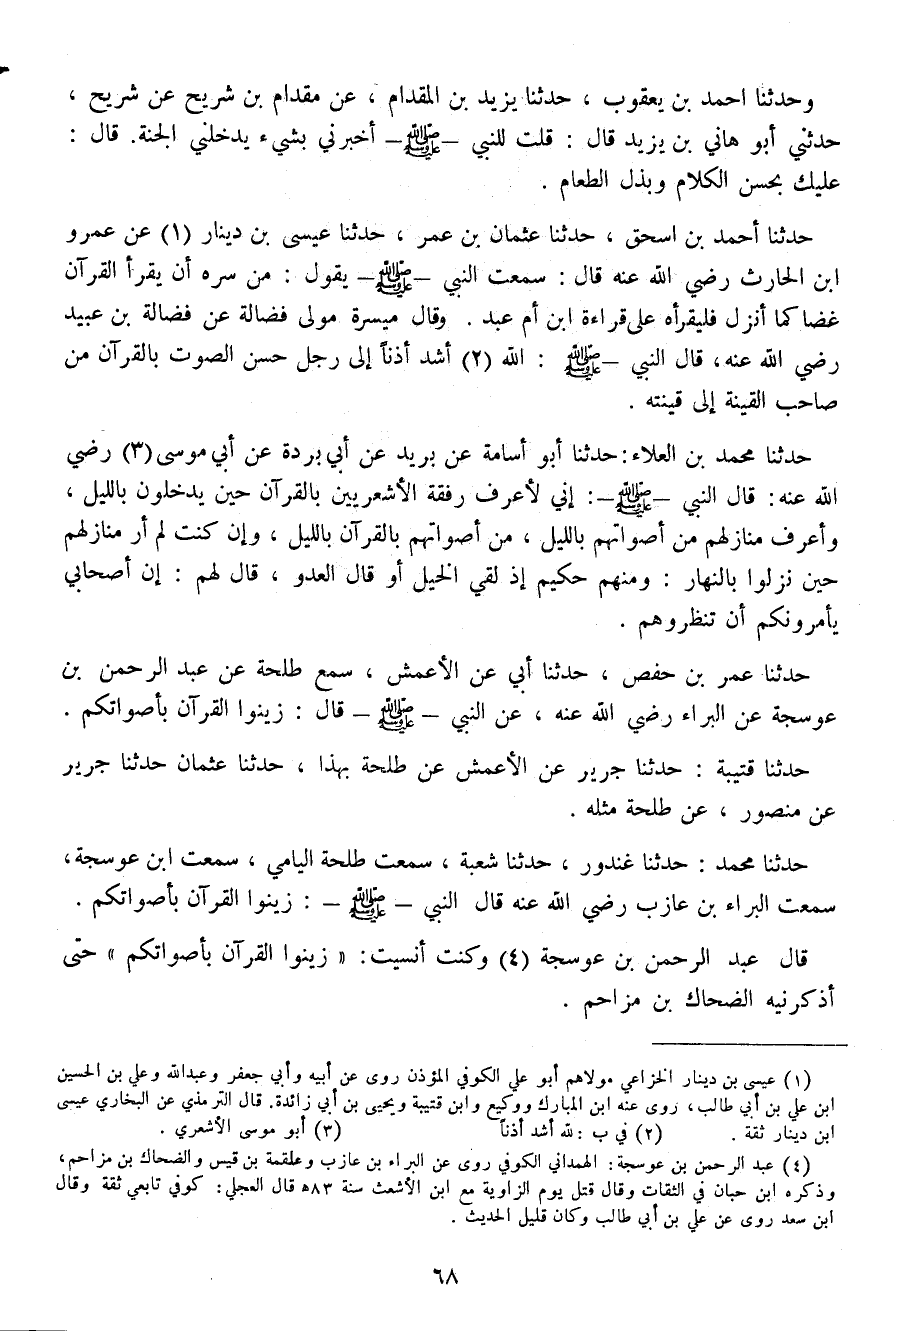 وحدثنا احمد بن يعقوب ، حدثنا يزيد بن المقدام ، عن مقدام بن شريح عن شريح ،
حدثني أبو هاني بن يزيد قال : قلت للنبي –ﷺ– أخبرني بشيء يدخلني الجنة. قال :
عليك بحسن الكلام وبذل الطعام .
حدثنا أحمد بن اسحق ، حدثنا عثمان بن عمر ، حدثنا عيسى بن دينار (١) عن عمرو
ابن الحارث رضي الله عنه قال : سمعت النبي –ﷺ– يقول : من سره أن يقرأ القرآن
غضا كما أنزل فليقرأه على قراءة ابن أم عبد . وقال ميسرة مولى فضالة عن فضالة بن عبيد
رضي الله عنه، قال النبي –ﷺ : الله (٢) أشد أذناً إلى رجل حسن الصوت بالقرآن من
صاحب القينة إلى قينته .
حدثنا محمد بن العلاء: حدثنا أبو أسامة عن بريد عن أبي بردة عن أبي موسى(٣) رضي
الله عنه: قال النبي –ﷺ–: إني لأعرف رفقة الأشعريين بالقرآن حين يدخلون بالليل ،
وأعرف منازلهم من أصواتهم بالليل ، من أصواتهم بالقرآن بالليل ، وإن كنت لم أر منازلهم
حين نزلوا بالنهار : ومنهم حكيم إذ لقي الخيل أو قال العدو ، قال لهم : إن أصحابي
يأمرونكم أن تنظروهم .
حدثنا عمر بن حفص ، حدثنا أبي عن الأعمش ، سمع طلحة عن عبد الرحمن بن
عوسجة عن البراء رضي الله عنه ، عن النبي – ﷺ – قال : زينوا القرآن بأصواتكم .
حدثنا قتيبة : حدثنا جرير عن الأعمش عن طلحة بهذا ، حدثنا عثمان حدثنا جرير
عن منصور ، عن طلحة مثله .
حدثنا محمد : حدثنا غندور ، حدثنا شعبة ، سمعت طلحة اليامي ، سمعت ابن عوسجة،
سمعت البراء بن عازب رضي الله عنه قال النبي – ﷺ – : زينوا القرآن بأصواتكم .
قال عبد الرحمن بن عوسجة (٤) وكنت أنسيت: « زينوا القرآن بأصواتكم » حتى
أذكرنيه الضحاك بن مزاحم .
(١) عيسى بن دينار الخزاعي مولاهم أبو علي الكوفي المؤذن روى عن أبيه وأبي جعفر وعبدالله وعلي بن الحسين
ابن علي بن أبي طالب، روى عنه ابن المبارك ووكيع وابن قتيبة ويحيى بن أبي زائدة. قال الترمذي عن البخاري عيسى
ابن دينار ثقة . (٢) في ب : لله أشد أذناً (٣) أبو موسى الأشعري .
(٤) عبد الرحمن بن عوسجة: الهمداني الكوفي روى عن البراء بن عازب وعلقمة بن قيس والضحاك بن مزاحم،
وذكره ابن حبان في الثقات وقال قتل يوم الزاوية مع ابن الأشعث سنة ٨٣ه قال العجلي: كوفي تابعي ثقة وقال
ابن سعد روى عن علي بن أبي طالب وكان قليل الحديث .
٦٨